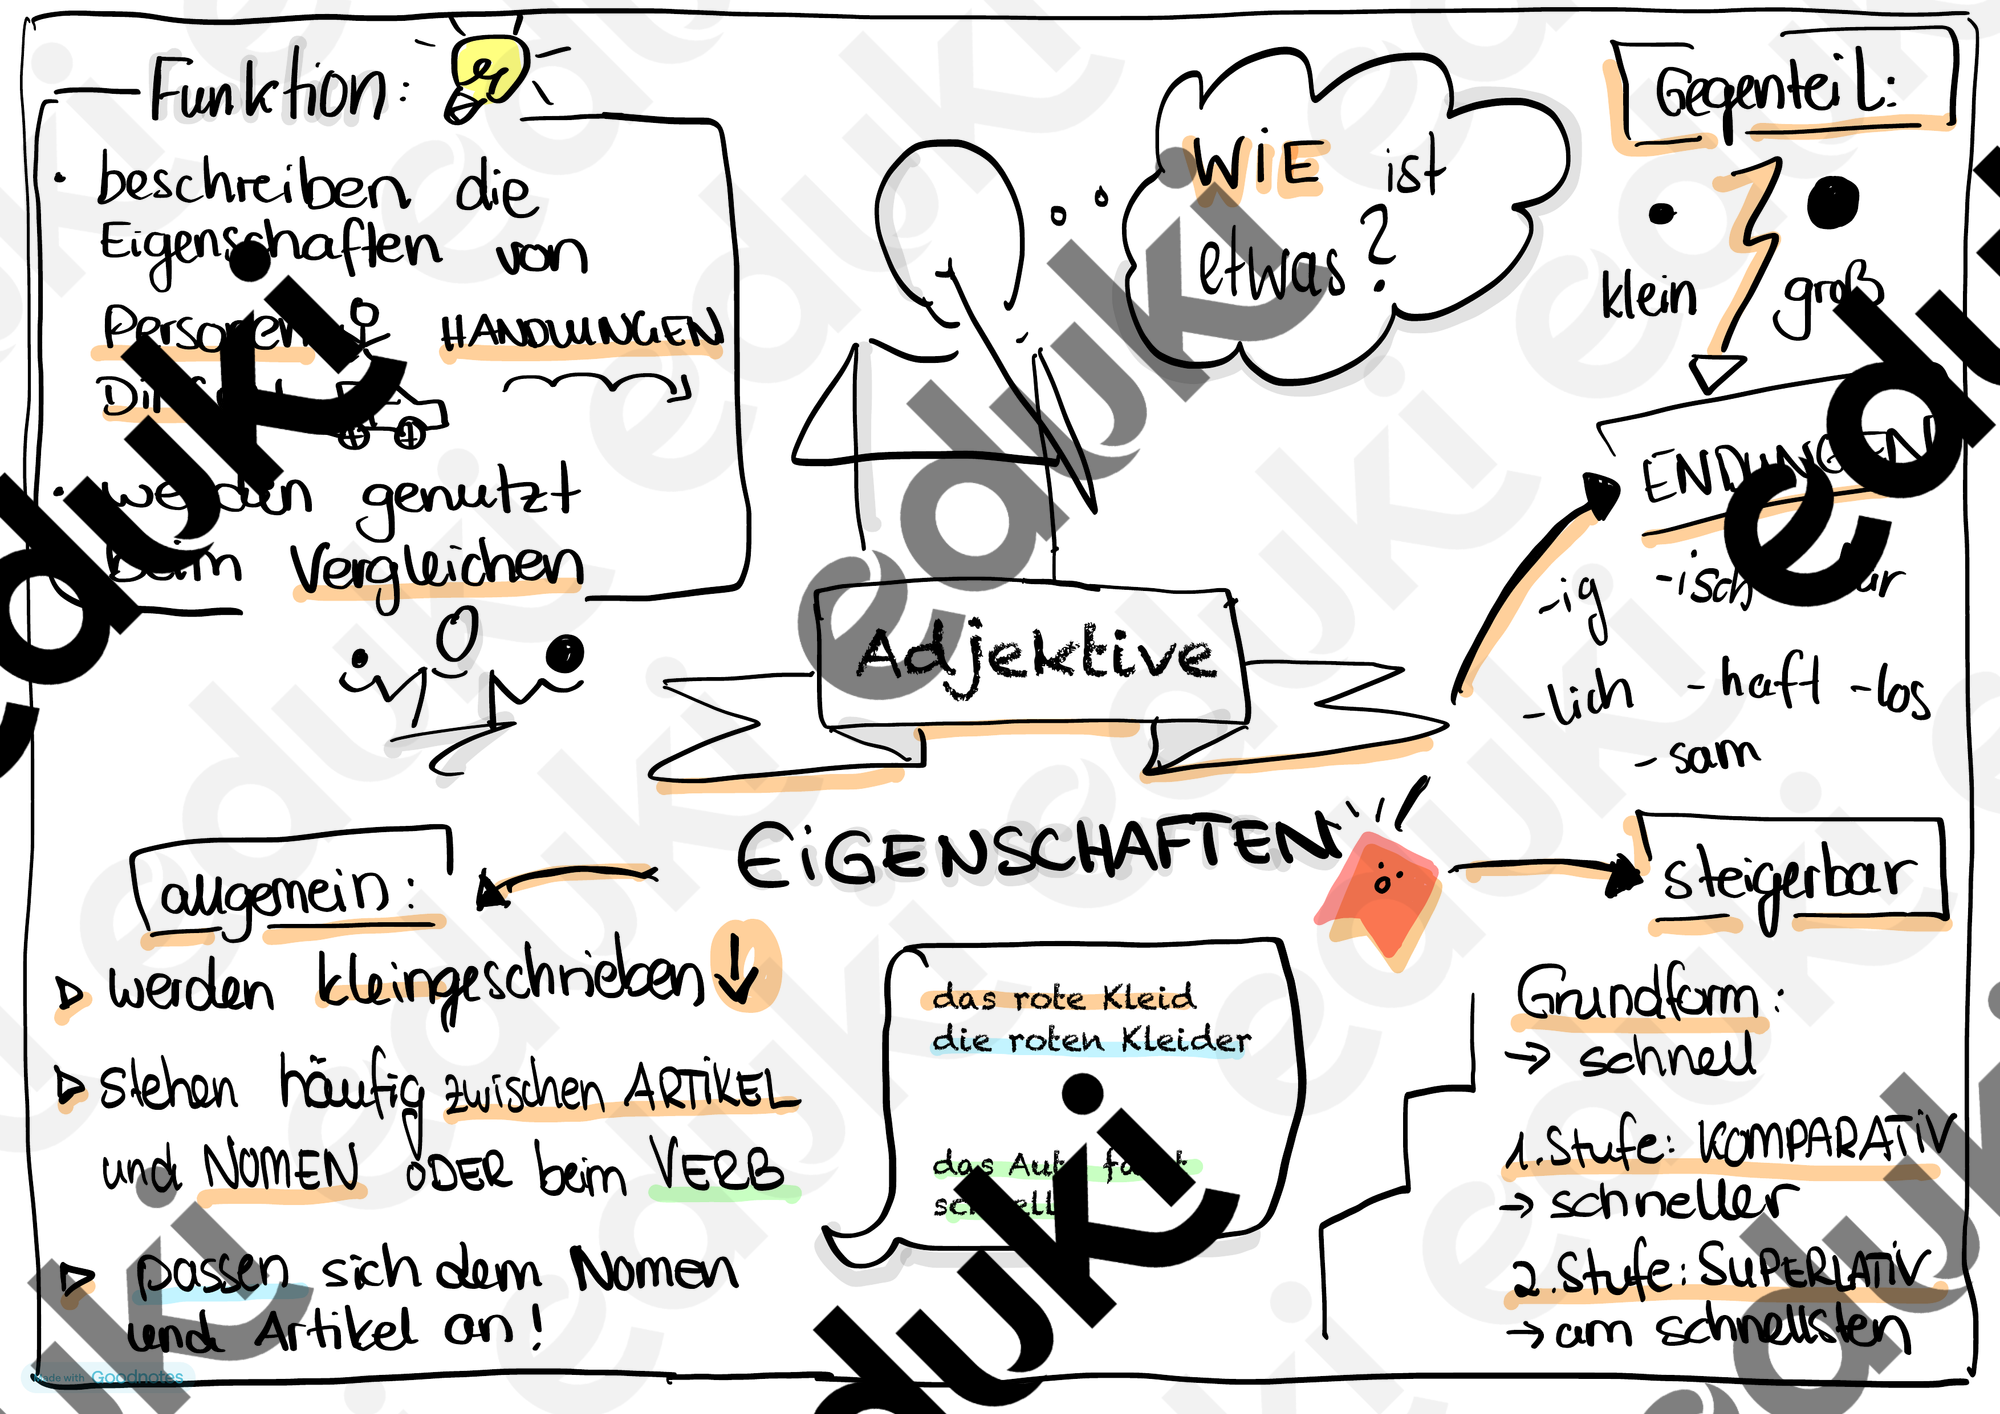 Funktion:
• beschreiben die
Eigenschaften von
Personen HANDLUNGEN
• werden genutzt
beim Vergleichen
WIE ist
etwas?
Gegenteil:
klein groß
ENDUNGEN
-ig -isch
-lich -haft -los
-sam
Adjektive
EIGENSCHAFTEN
allgemein:
werden kleingeschrieben
stehen häufig zwischen ARTIKEL
und NOMEN ODER beim VERB
passen sich dem Nomen
und Artikel an!
das rote Kleid
die roten Kleider
das Auto fährt
schnell
steigerbar
Grundform:
→ schnell
1. Stufe: KOMPARATIV
→ schneller
2. Stufe: SUPERLATIV
→ am schnellsten
Made with Goodnotes
eduki
eduki
eduki
eduki
eduki
eduki